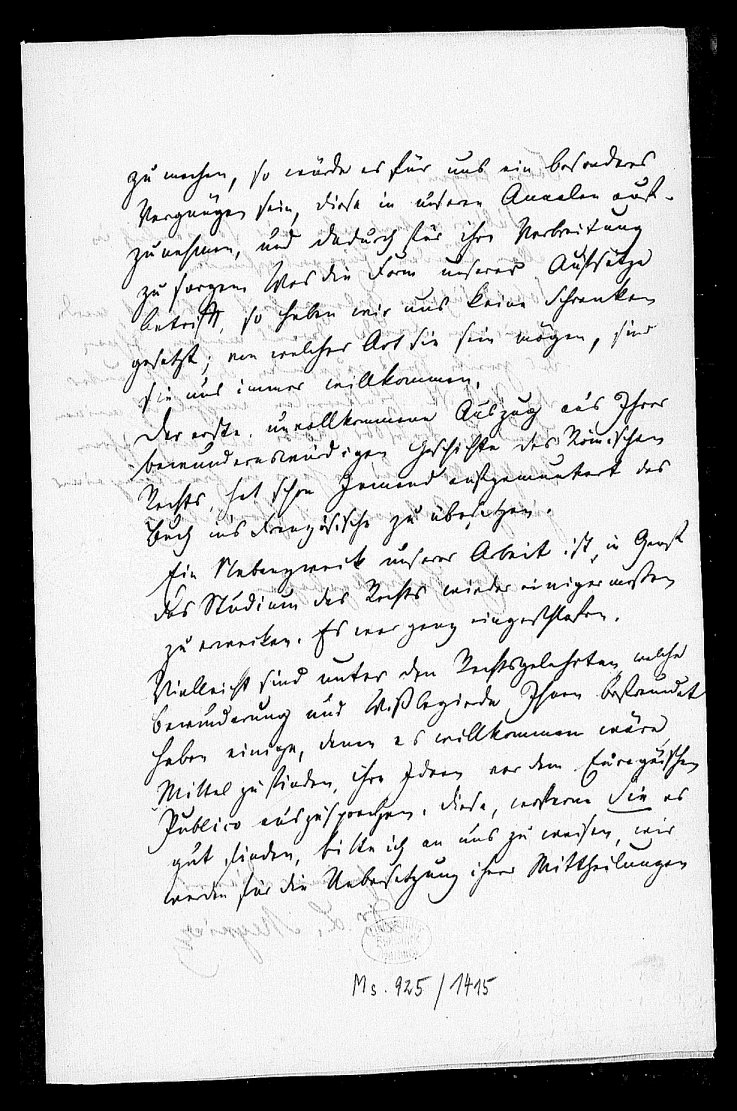 zu machen, so würde es für uns ein besonderes
Vergnügen sein, diese in unseren Annalen auf-
zunehmen, und dadurch für ihre Verbreitung
zu sorgen. Was die Form unserer Aufsätze
betrifft, so haben wir uns keine Schranken
gesetzt; von welcher Art sie sein mögen, sind
sie uns immer willkommen.
Der erste, unvollkommene Auszug aus Ihrer
bewundernswürdigen Geschichte des Römischen
Rechts, hat schon Jemand aufgemuntert das
Buch ins Französische zu übersetzen.
Ein Nebenzweck unserer Arbeit ist, in Genf
das Studium des Rechts wieder einigermassen
zu erwecken. Es war ganz eingeschlafen.
Vielleicht sind unter den Rechtsgelehrten, welche
Bewunderung und Wißbegierde Ihnen befreundet
haben einige, denen es willkommen wäre
Mittel zu finden, ihre Ideen vor dem Europäischen
Publico auszusprechen. Diese, woferne Sie es
gut finden, bitte ich an uns zu weisen, wir
werden für die Uebersetzung ihrer Mittheilungen
Ms. 925/1415